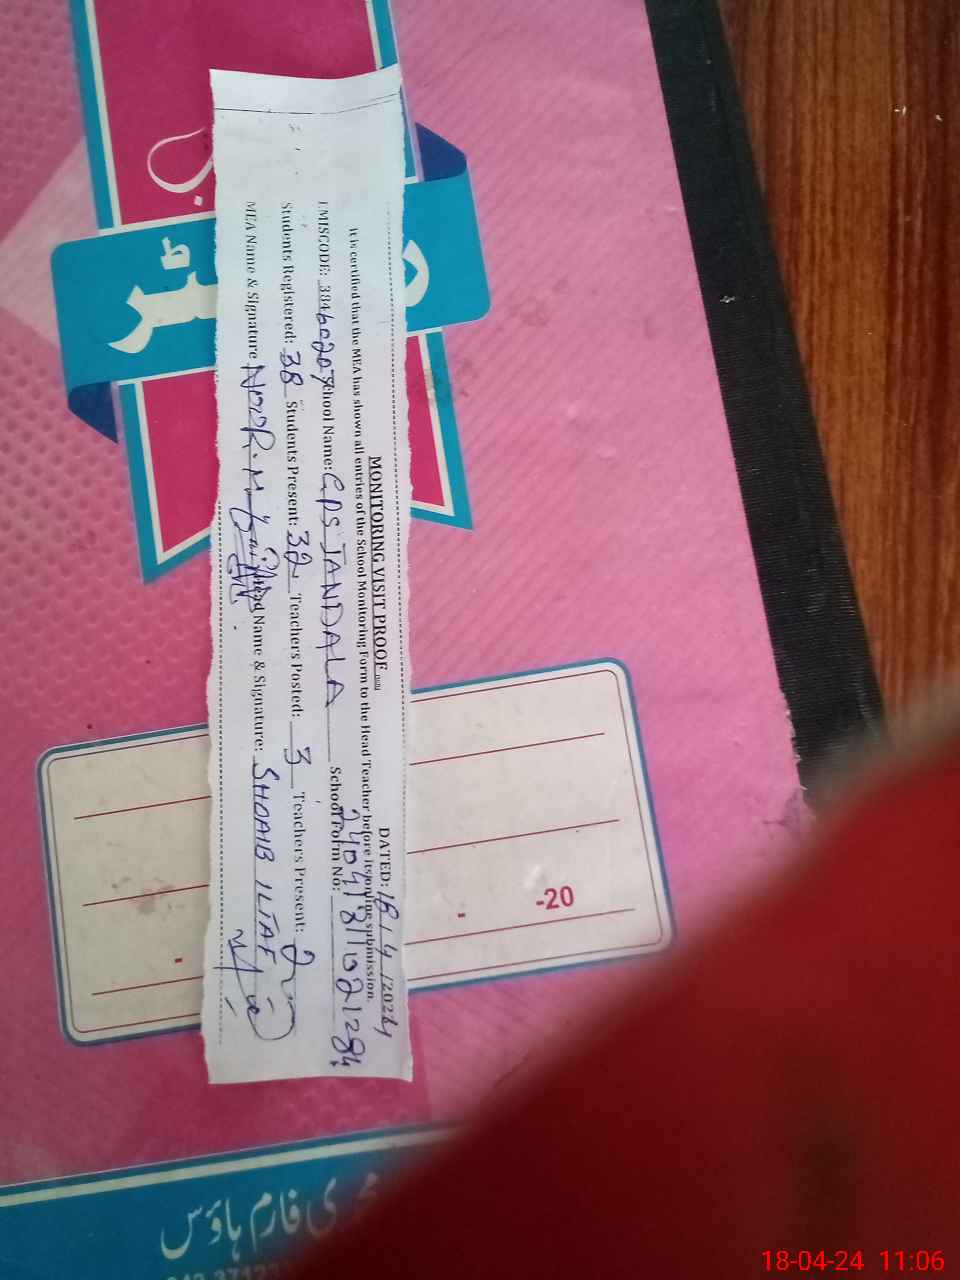 MONITORING VISIT PROOF
DATED: 18/4/2024
It is certified that the MEA has shown all entries of the School Monitoring Form to the Head Teacher before its online submission.
EMISCODE: 38460207 School Name: GPS JANDALA School Form No:
Students Registered: 38 Students Present: 32 Teachers Posted: 3 Teachers Present:
MEA Name & Signature NOOR. Head Name & Signature: SHOAIB ILTAF
-20
فارم ہاؤس
18-04-24 11:06